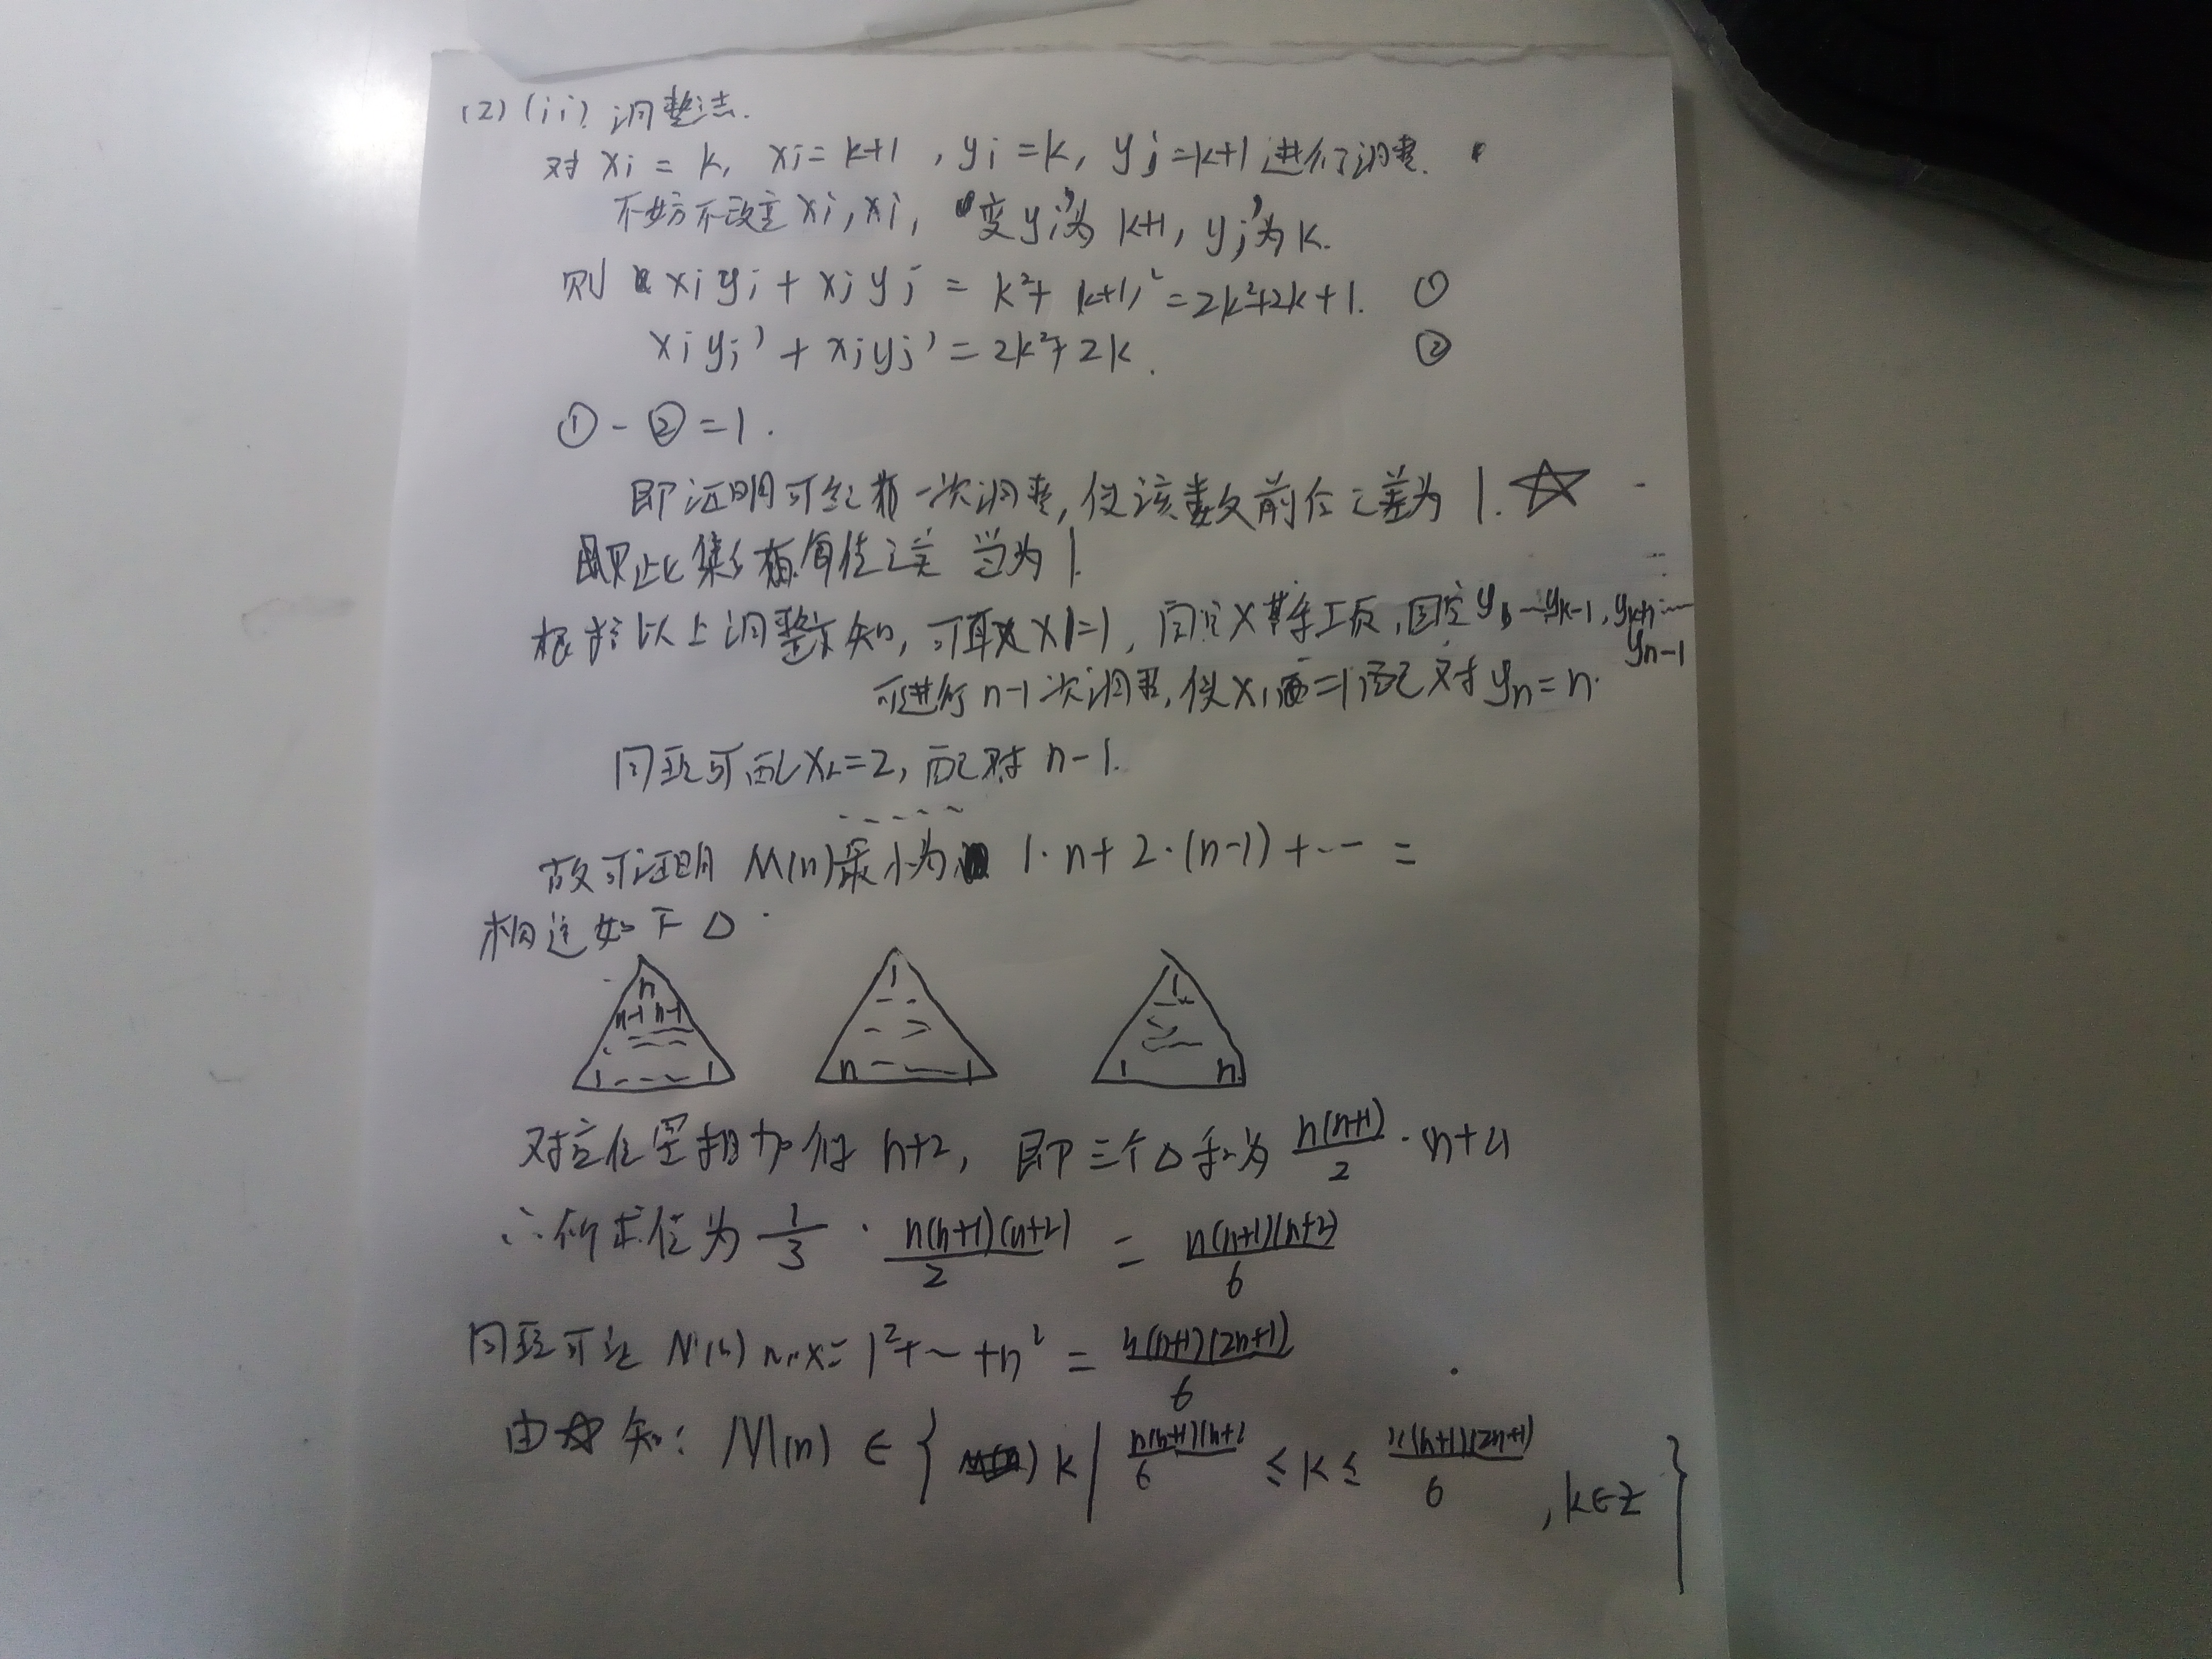 (2) (ii) 调整法.
对 xi = k, xj = k+1, yi = k, yj = k+1 进行调整.
不妨不改变 xi, xj, 变 yi' 为 k+1, yj' 为 k.
则 xi yi + xj yj = k²+(k+1)² = 2k²+2k+1. ①
xi yi' + xj yj' = 2k²+2k. ②
① - ② = 1.
即证明可经 一次调整, 使该数前后之差为 1. ☆
即此集 值之差 为 1
根据以上调整知, 可取 x1=1, 固定 x 其余 项, 固定 yk-1, yk+1
yn-1
可进行 n-1 次调整, 使 x1=1 配对 yn = n.
同理可 x2=2, 配对 n-1.
故可证明 M(n) 最小为 1·n + 2·(n-1) + ··· =
构造如下 △
n 1 1
n-1 n-1
1 --- 1 n --- 1 1 n
对应位置相加得 n+2, 即三个△和为 n(n+1)/2 ·(n+2)
∴所求值为 1/3 · n(n+1)(n+2)/2 = n(n+1)(n+2)/6
同理可证 M(n) max = 1²+~+n² = n(n+1)(2n+1)/6
由☆知: M(n) ∈ { k | n(n+1)(n+2)/6 ≤ k ≤ n(n+1)(2n+1)/6 , k∈Z }